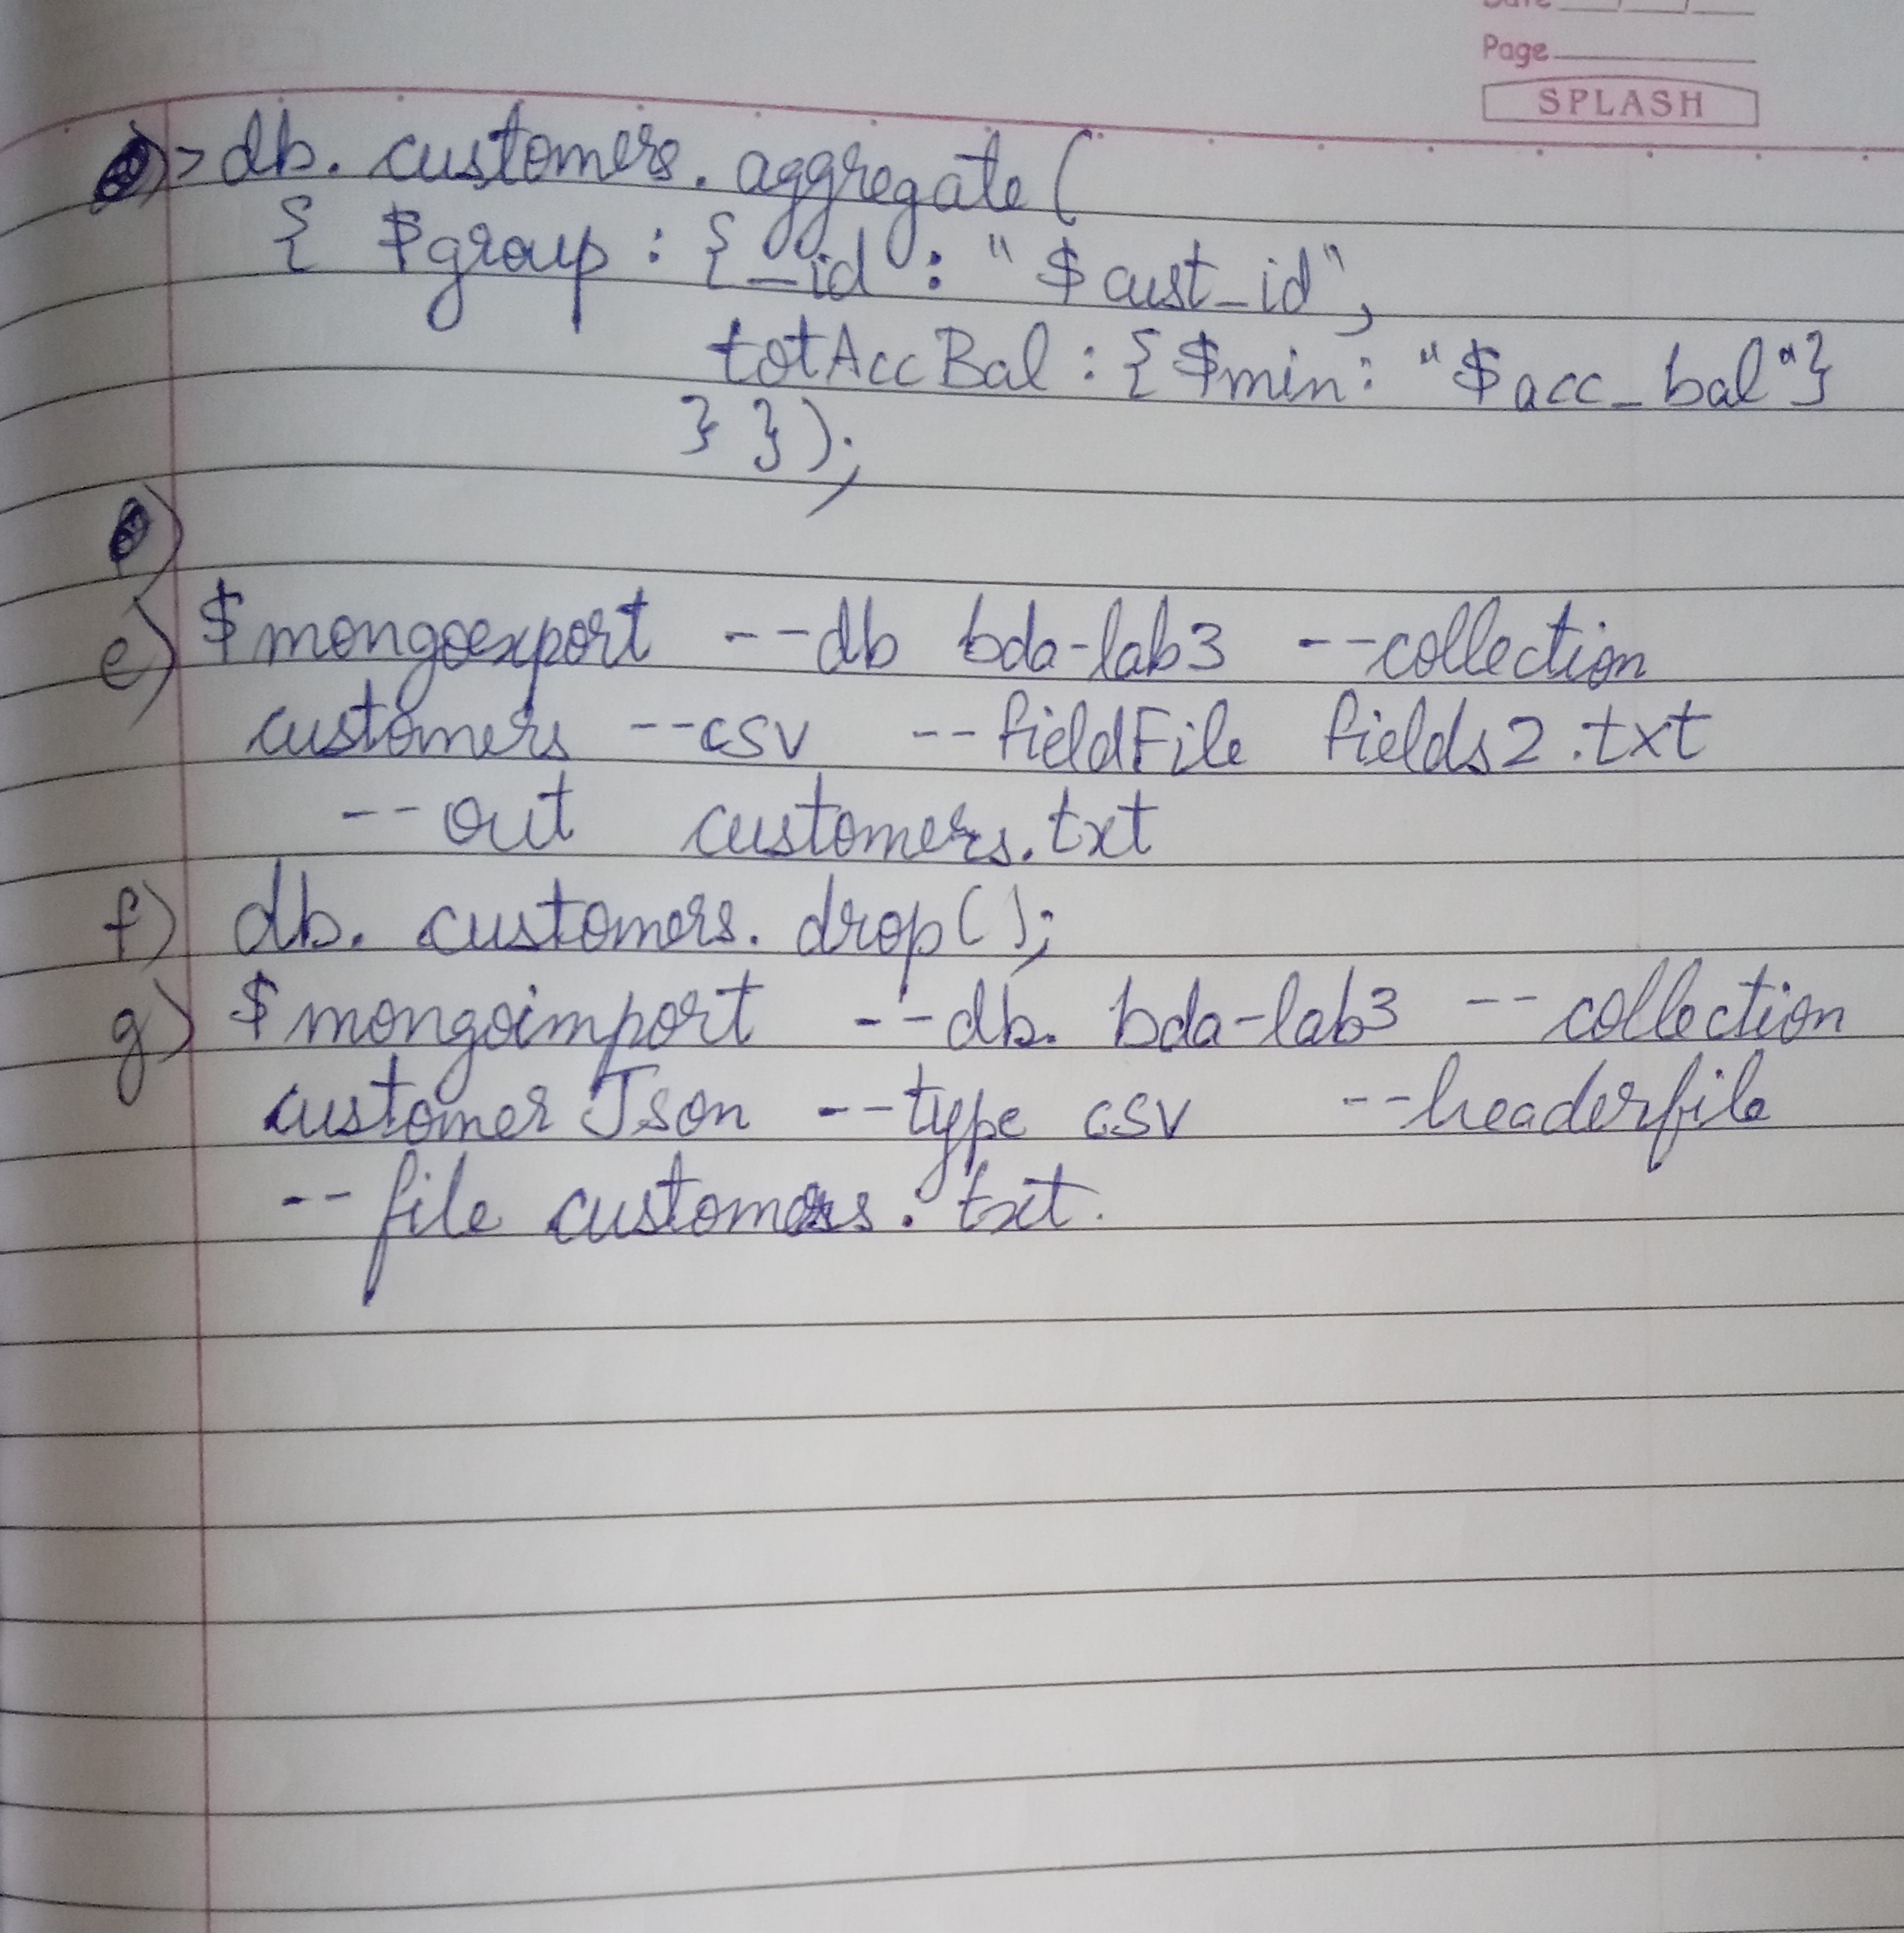 Date
Page
SPLASH
> db. customers. aggregate (
{ $group : { _id : "$cust_id",
totAccBal : { $min : "$acc_bal"}
} } );
e) $mongoexport --db bda-lab3 --collection
customers --csv --fieldFile fields2.txt
--out customers.txt
f) db. customers. drop( );
g) $mongoimport --db. bda-lab3 --collection
customerJson --type csv --headerfile
--file customers. txt.